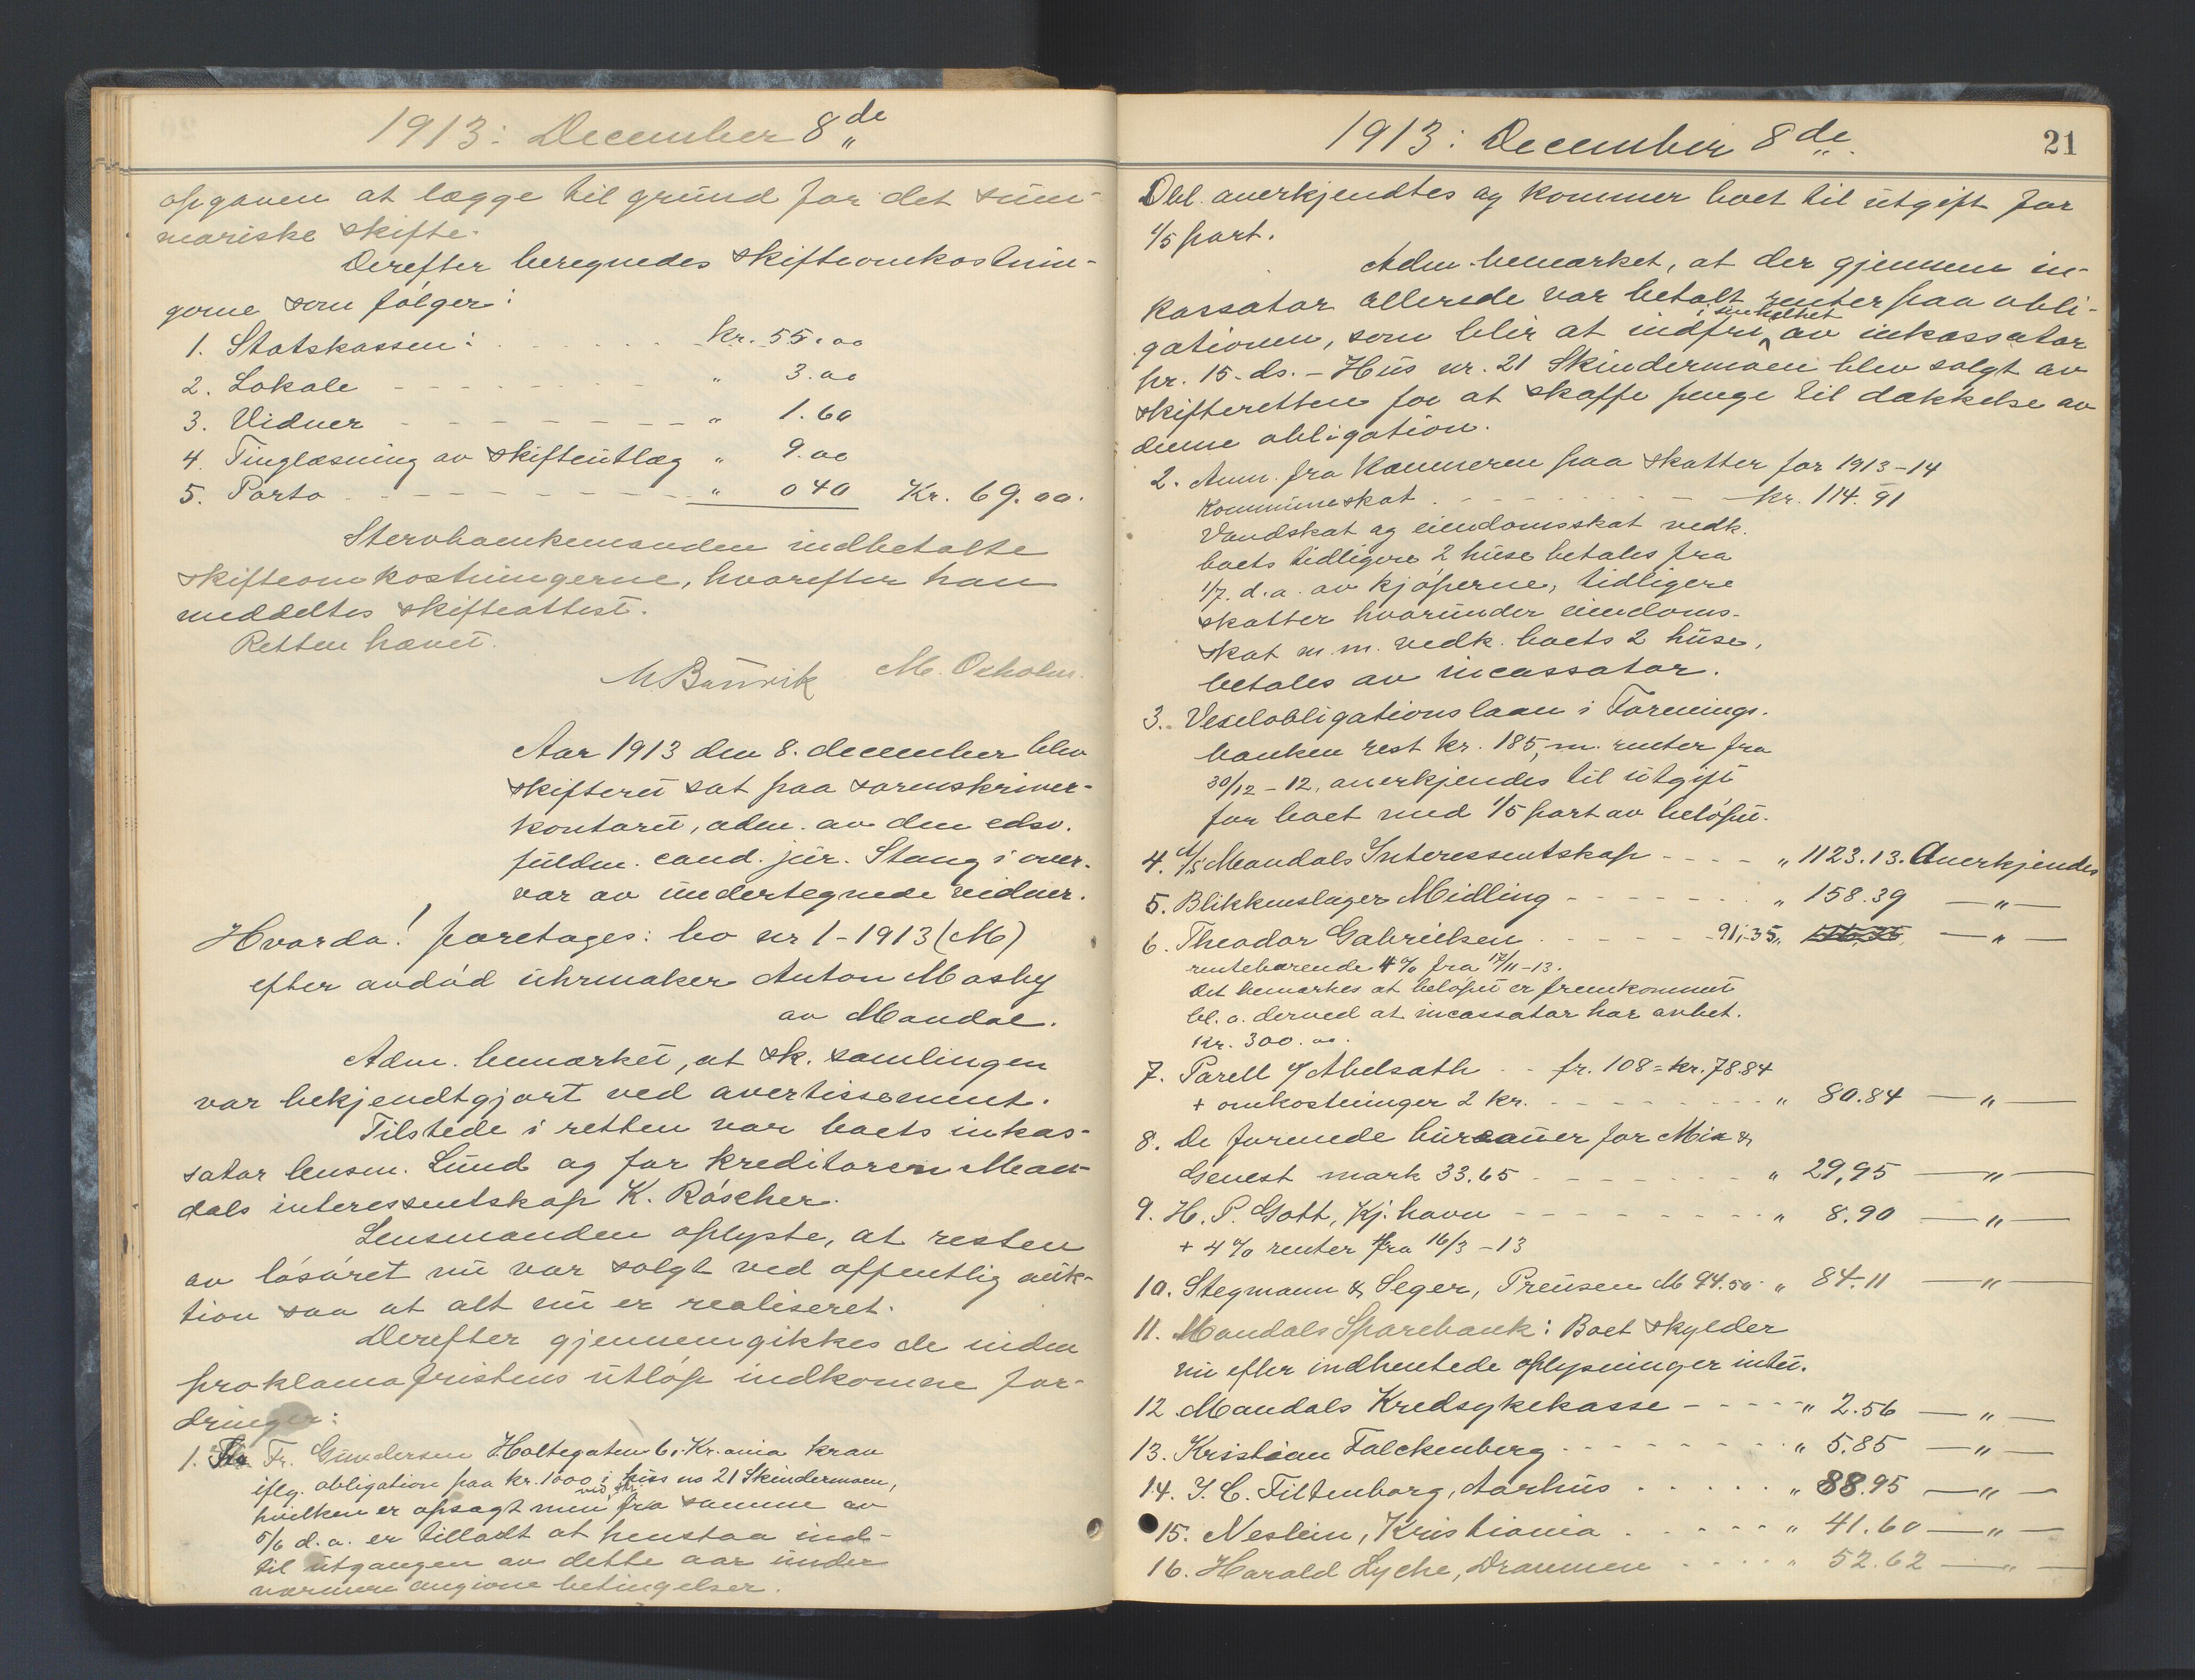 1913: December 8de
opgaven at lægge til grund for det sum-
mariske skifte.
Derefter beregnedes skifteomkostnin-
gerne som følger:
1. Statskassen: kr. 55.00
2. Lokale " 3.00
3. Vidner " 1.60
4. Tinglæsning av skifteutlæg " 9.00
5. Porto " 0 40 Kr. 69.00.
Stervboenkemanden indbetalte
skifteomkostningerne, hvorefter han
meddeltes skifteattest.
Retten hævet.
M. Oxholm.
Aar 1913 den 8. december blev
skifteret sat paa sorenskriver-
kontoret, adm. av den edsv.
fuldm. cand. jur. Stang i over-
vær av undertegnede vidner.
Hvorda! foretages: bo nr 1-1913 (M)
efter avdød uhrmaker Anton Mosby
av Mandal.
Adm. bemærket, at sk. samlingen
var bekjendtgjort ved avertissement.
Tilstede i retten var boets inkas-
sator lensm. Lund og for kreditoren Man-
dals interessentskap K. Röscher.
Lensmanden oplyste, at resten
av løsøret nu var solgt ved offentlig auk-
tion saa at alt nu er realiseret.
Derefter gjennemgikkes de inden
proklamafristens utløp indkomne for-
dringer:
1. Fr. Gundersen Holtegaten 6, Kr.ania krav
iflg. obligation paa kr. 1000 i hus no 21 Skindermoen,
hvilken er opsagt men fra samme av
5/6 d.a. er tilladt at henstaa ind-
til utgangen av dette aar under
nærmere angivne betingelser.
1913: December 8de.
21
Obl. anerkjendtes og kommer boet til utgift for
1/5 part.
Adm. bemærket, at der gjennem in-
kassator allerede var betalt renter paa obli-
i sin helhet
gationen, som blir at indfri av inkassator
pr. 15. ds. - Hus nr. 21 Skindermoen blev solgt av
skifteretten for at skaffe penge til dækkelse av
denne obligation.
2. Anm. fra Kæmneren paa skatter for 1913-14
Kommuneskat kr. 114.91
Vandskat og eiendomsskat vedk.
boets tidligere 2 huse betales fra
1/7. d.a. av kjøperne, tidligere
skatter hvorunder eiendoms-
skat m.m. vedk. boets 2 huse,
betales av incassator.
3. Vexelobligationslaan i Forenings-
banken rest kr. 185, m. renter fra
30/12-12, anerkjendes til utgift
for boet med 1/5 part av beløpet.
4. A/S Mandals Interessentskap " 1123.13. Anerkjendes
5. Blikkenslager Midling " 158.39 —"—
6. Theodor Gabrielsen 91,35,, —"—
rentebærende 4% fra 17/11-13.
Det bemerkes at beløpet er fremkommet
bl. a. derved at incassator har avbet.
kr. 300.00.
7. Parell & Abelsath fr. 108 = kr. 78.84
+ omkostninger 2 kr. " 80.84 —"—
8. De forenede bureauer for Mix &
Genest mark 33.65 " 29,95 —"—
9. H. P. Gott, Kj.havn " 8.90 —"—
+ 4% renter fra 16/3-13
10. Stegmann & Seger, Preusen M 94.50 " 84.11 —"—
11. Mandals Sparebank: Boet skylder
nu efter indhentede oplysninger intet.
12 Mandals Kredsykekasse " 2.56 —"—
13. Kristian Falckenberg " 5.85 —"—
14. J. C. Filtenborg, Aarhus " 88.95 —"—
15. Neslein, Kristiania " 41.60 —"—
16. Harald Lyche, Drammen " 52.62 —"—